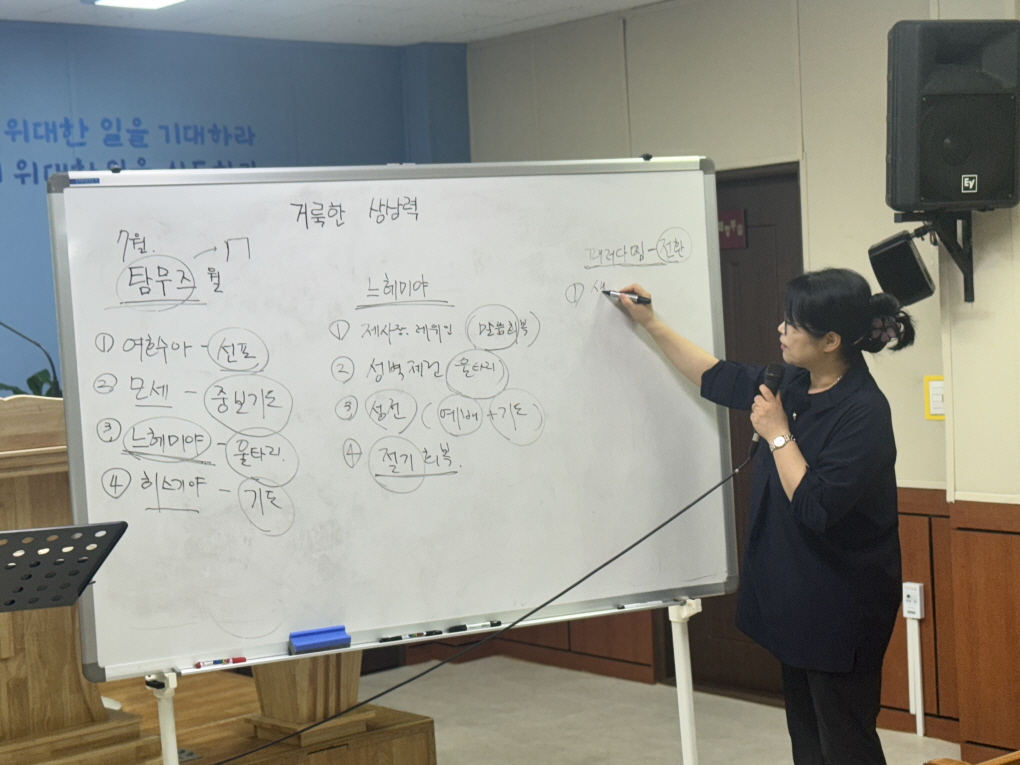 위대한 일을 기대하라
위대한 일을 시도하라
거룩한 상상력
7월.
탐무즈월
① 여호수아 - 선포
② 모세 - 중보기도
③ 느헤미야 - 울타리.
④ 히스기야 - 기도
느헤미야
① 제사장. 레위인 (말씀회복)
② 성벽재건 (울타리)
③ 성전 (예배 + 기도)
④ 절기 회복.
패러다임 - 전환
① 생
EV